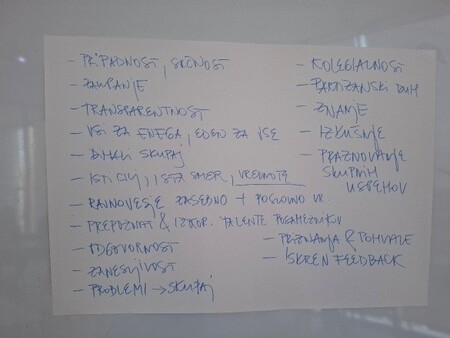 - PRIPADNOST, SRČNOST
- ZAUPANJE
- TRANSPARENTNOST
- VSI ZA ENEGA, EDEN ZA VSE
- DIHALI SKUPAJ
- ISTI CILJ, ISTA SMER, VREDNOTE
- RAVNOVESJE ZASEBNO + POSLOVNO
- PREPOZNAT & IZKOR. TALENTE POSAMEZNIKOV
- ODGOVORNOST
- ZANESLJIVOST
- PROBLEMI → SKUPAJ
- KOLEGIALNOST
- PARTIZANSKI DUH
- ZNANJE
- IZKUŠNJE
- PRAZNOVANJE
SKUPNIH
USPEHOV
- PRIZNANJA & POHVALE
- ISKREN FEEDBACK